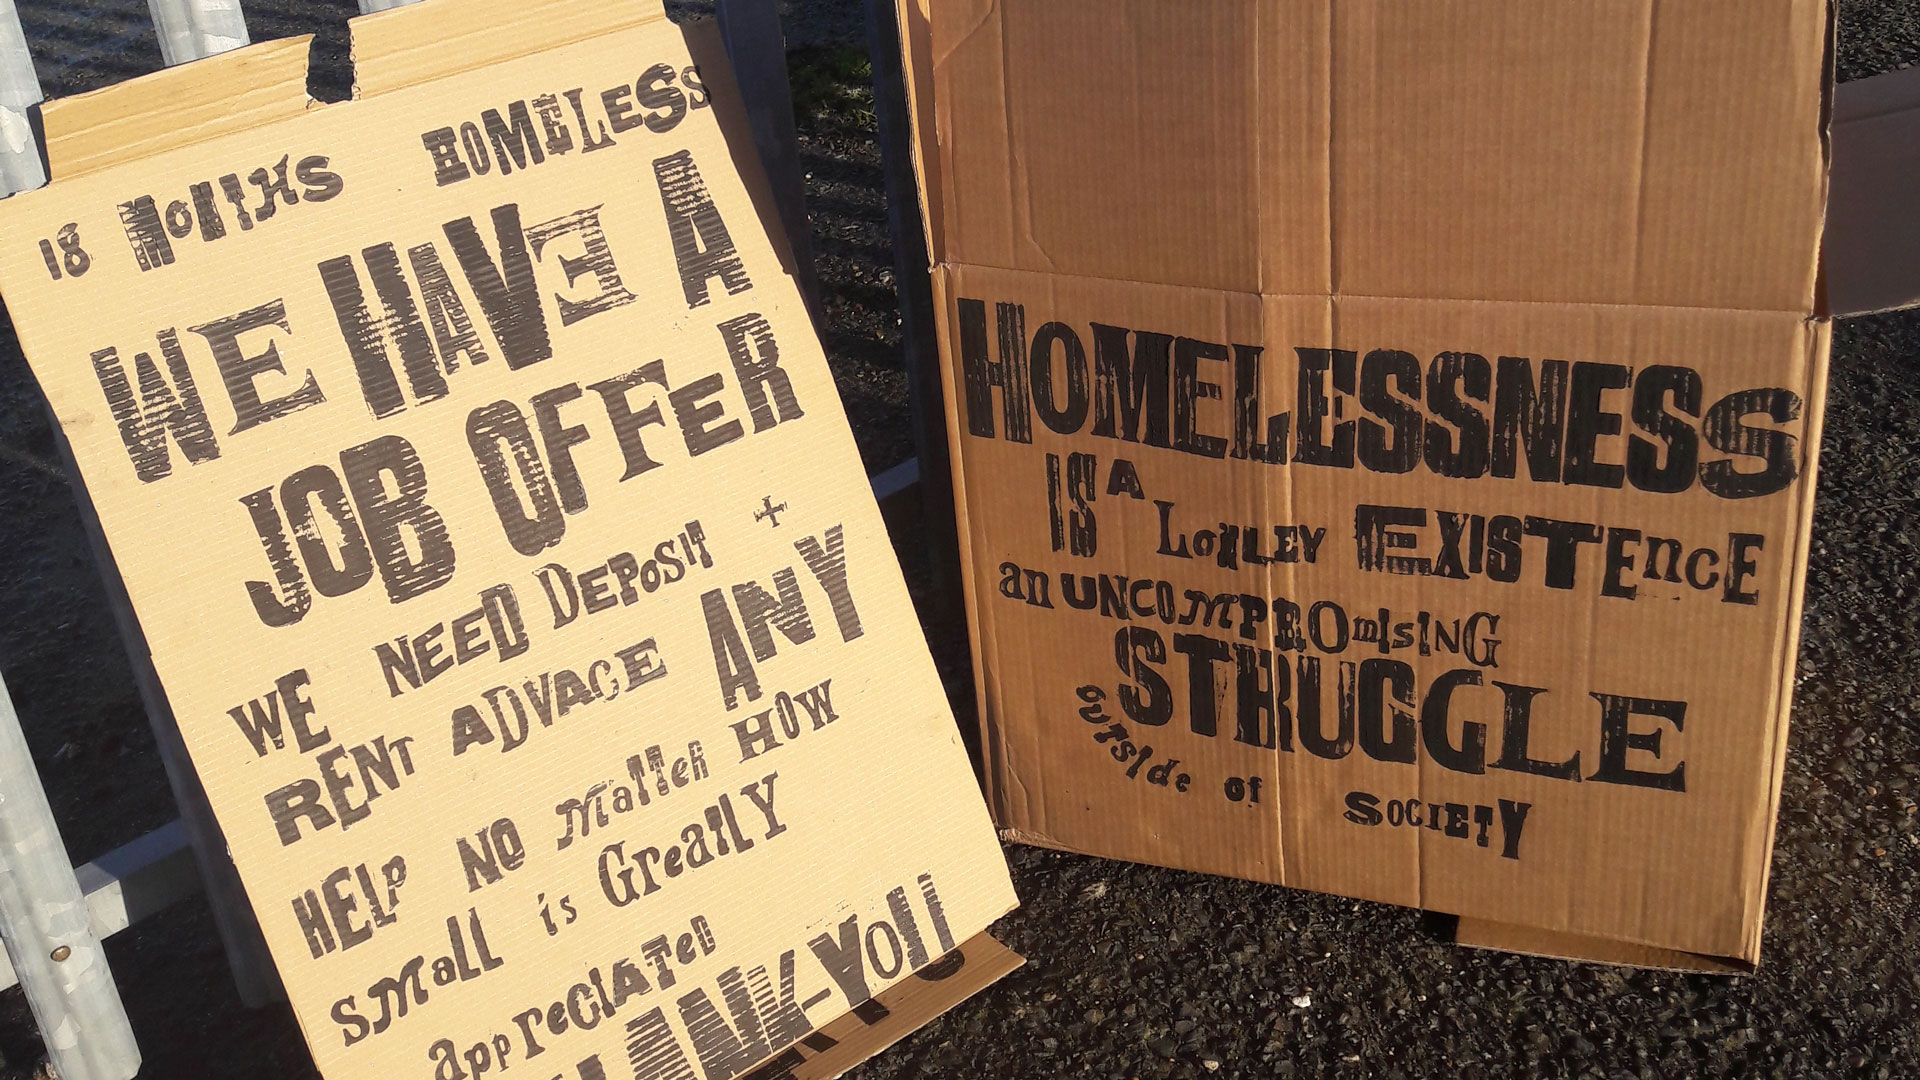 18 MoNTHS HOMELESS
WE HAVE A
JOB OFFER
WE NEED DEPOSIT +
RENT ADVACE ANY
HELP NO MatteR HOW
sMall is GreatlY
appreciATED
HANK-YOU
HOMELESSNESS
IS A LoNLEY EXISTEncE
an UNCOMPROmISING
STRUGGLE
outside of SOCIETY